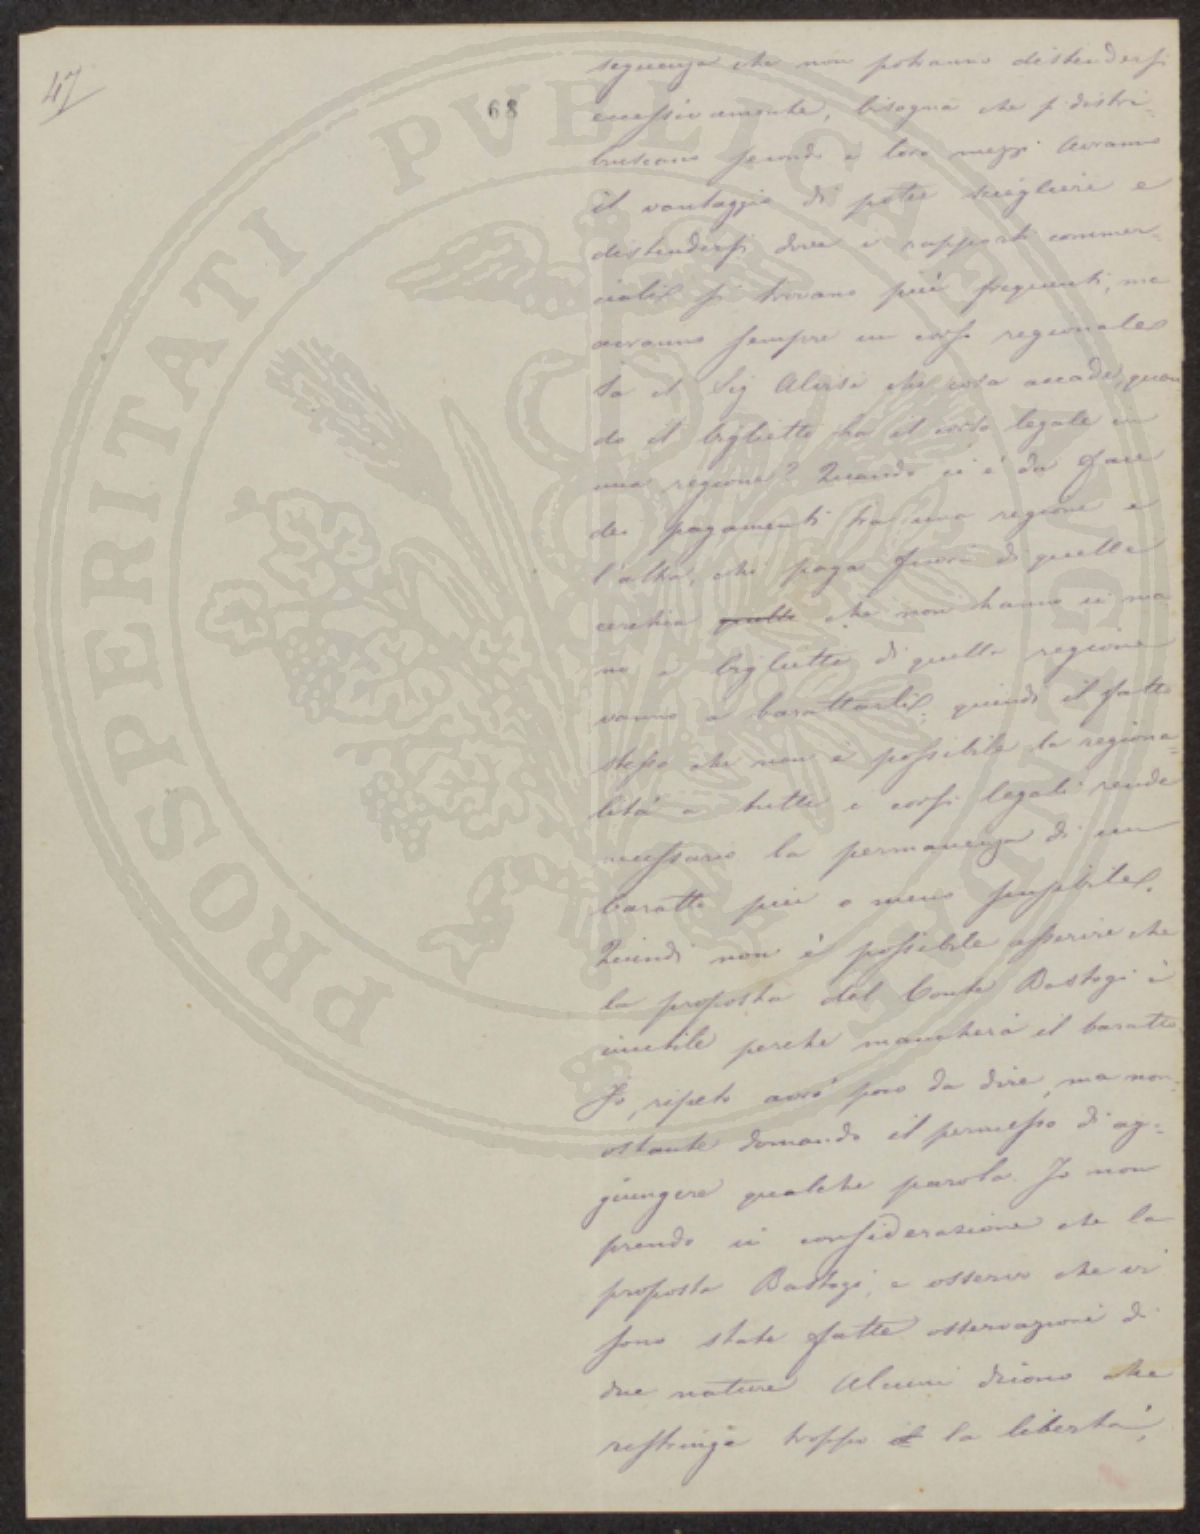 47
68
seguenza che non potranno distendersi
eccessivamente, bisogna che si distri-
buiscano secondo i loro mezzi. Avranno
il vantaggio di poter scegliere e
distendersi dove i rapporti commer-
ciali si trovano più frequenti, ma
avranno sempre un corso regionale
Sa il Sig Alvisi che cosa accade, quan
do il biglietto ha il corso legale in
una regione? Quando ci è da fare
dei pagamenti tra una regione e
l'altra, chi paga fuori di quella
cerchia quelli che non hanno in ma
no i biglietti di quella regione
vanno a barattarli; quindi il fatto
stesso che non è possibile la regiona-
lità a tutti i corsi legali rende
necessario la permanenza di un
baratto più o meno sensibile.
Quindi non è possibile asserire che
la proposta del Conte Bastogi è
inutile perchè mancherà il baratto
Io, ripeto avrò poco da dire, ma non-
ostante domando il permesso di ag-
giungere qualche parola. Io non
prendo in considerazione che la
proposta Bastogi, e osservo che vi
sono state fatte osservazioni di
due nature Alcuni dicono che
restringe troppo il la libertà,
PROSPERITATI PVBLICAE